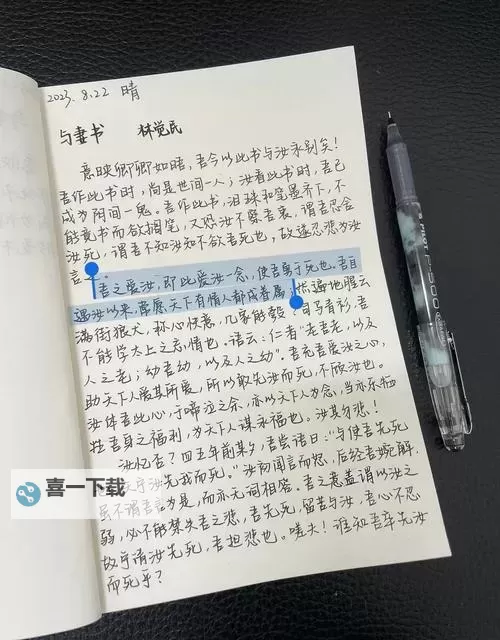 2023.8.22 晴
与妻书 林觉民
意映卿卿如晤，吾今以此书与汝永别矣！
吾作此书时，尚是世间一人；汝看此书时，吾已
成为阴间一鬼。吾作此书，泪珠和笔墨齐下，不
能竟书而欲搁笔，又恐汝不察吾衷，谓吾忍舍
汝死，谓吾不知汝不欲吾死也，故遂忍悲为汝
言之。
吾之爱汝，即此爱汝一念，使吾勇于死也。吾自
遇汝以来，常愿天下有情人都成眷属，然遍地腥云
满街狼犬，称心快意，几家能彀？司马青衫，吾
不能学太上之忘情也。语云：仁者“老吾老，以及
人之老；幼吾幼，以及人之幼”。吾充吾爱汝之心，
助天下人爱其所爱，所以敢先汝而死，不顾汝也。
汝体吾此心，于啼泣之余，亦以天下人为念，当亦乐牺
牲吾身之福利，为天下人谋永福也。汝其勿悲！
汝忆否？四五年前某夕，吾尝语曰：“与使吾先死
也，无宁汝先我而死。”汝初闻言而怒，后经吾婉解，
虽不谓吾言为是，而亦无词相答。吾之意盖谓以汝之
弱，必不能禁失吾之悲，吾先死，留苦与汝，吾心不忍
故宁请汝先死，吾担悲也。嗟夫！谁知吾卒先汝
而死乎？
喜一下载
PILOT P-500